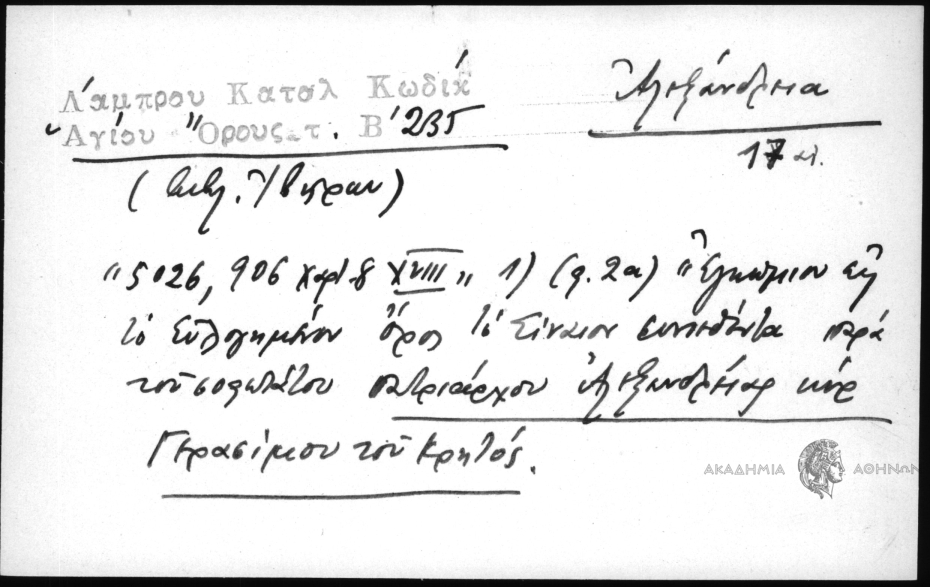 Λάμπρου Καταλ Κωδίκ
Ἁγίου Ὄρους τ. Β' 235
Ἀλεξάνδρεια
17 αἰ.
(Βιβλ. Ἰβήρων)
"5026, 906 χαρτ. 8 XVIII" 1) (φ. 2α) "Ἐγκώμιον εἰς
τὸ εὐλογημένον ὄρος τὸ Σίναιον συντεθέντα παρὰ
τοῦ σοφωτάτου πατριάρχου Ἀλεξανδρείας κύρ
Γερασίμου τοῦ Κρητός.
ΑΚΑΔΗΜΙΑ ΑΘΗΝΩΝ